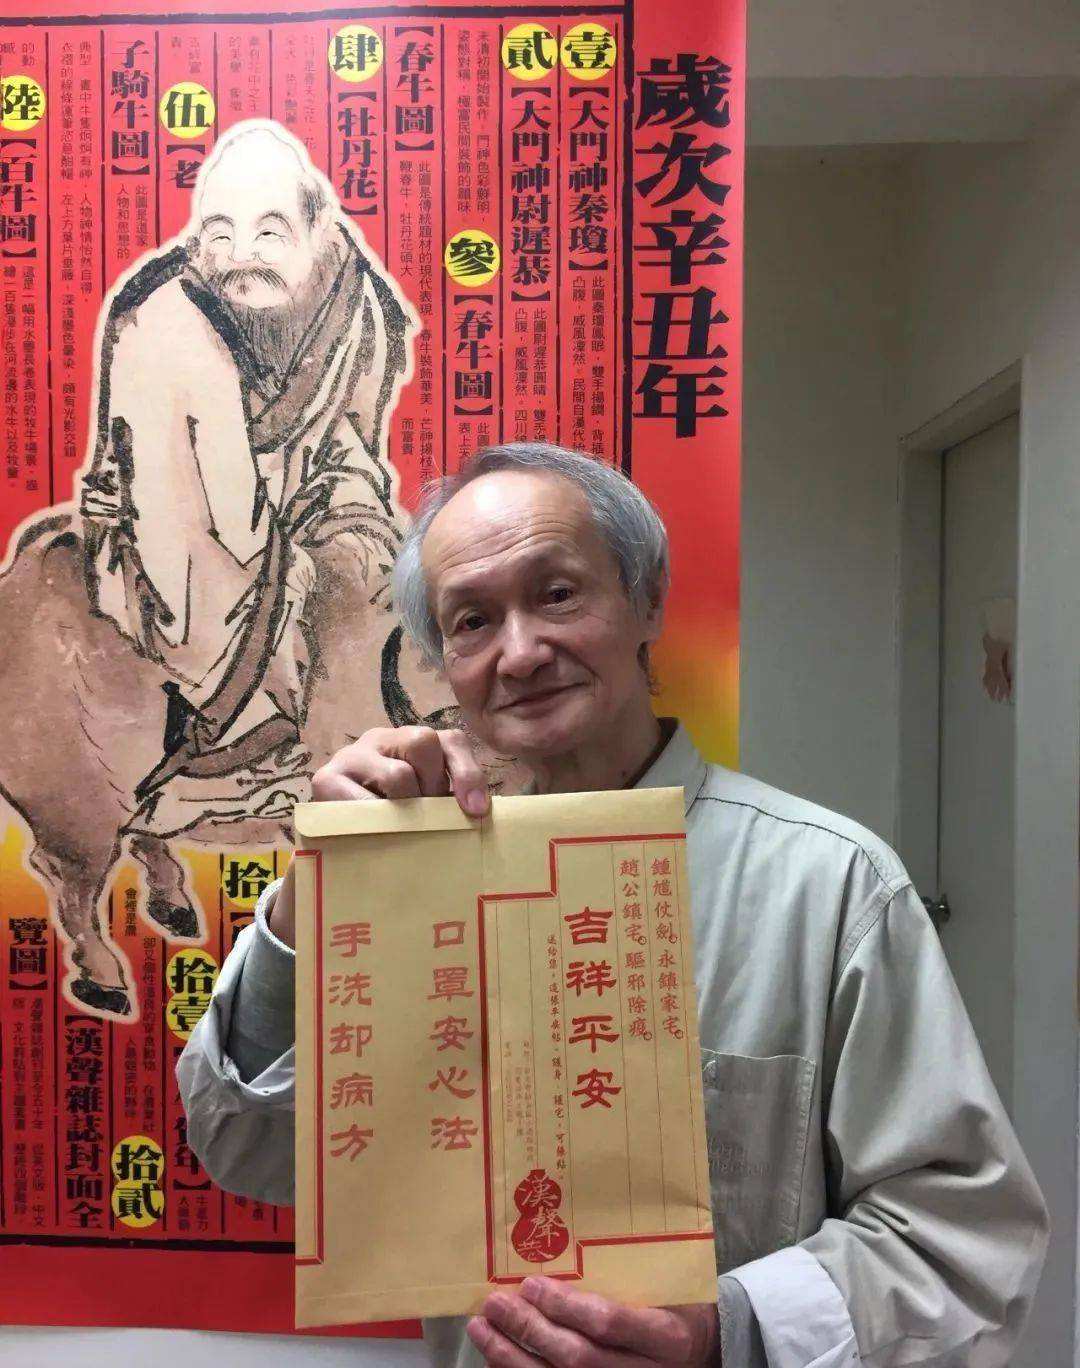 歲次辛丑年
壹
【大門神秦瓊】
此圖秦瓊鳳眼，雙手揚鐧，背插
凸腹，威風凜然。民間自漢代始
貳
【大門神尉遲恭】
此圖尉遲恭圓睛，雙手揚
凸腹，威風凜然。四川綿
末清初開始製作。門神色彩鮮明，
姿態對稱，極富民間裝飾的韻味。
參
【春牛圖】
此圖
表上天
【春牛圖】
此圖是傳統題材的現代表現。春牛裝飾華美，芒神揚枝示
鞭春牛，牡丹花碩大
而富貴。
肆
【牡丹花】
伍
【老
子騎牛圖】
此圖是道家
人物和思想的
典型，畫中牛隻炯炯有神，人物神情怡然自得，
衣襟的線條運筆恣意酣暢，左上方葉片垂藤，深淺墨色暈染，頗有光影交錯
的動
陸
【百牛圖】
這是一幅用水墨長卷表現的牧牛場景，描
繪一百隻漫步在河流邊的水牛以及牧童。
拾
會裡是農
拾壹
年】
卻又個性溫良的草食動物，在農業社
人最親密的夥伴，
拾貳
【漢聲雜誌封面全
覽圖】
漢聲雜誌創刊至今五十年，從英文版、中文
版，
鍾馗仗劍。永鎮家宅。
趙公鎮宅。驅邪除瘟。
吉祥平安
送給您，這張平安帖，護身、鎮宅，可張貼。
漢聲巷
口罩安心法
手洗却病方